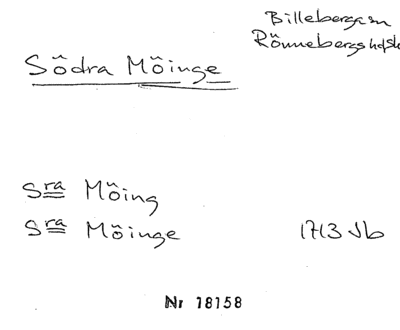 Billeberga sn
Rönnebergs hd sk
Södra Möinge
Sra Möing
Sra Möinge 1713 Jb
Nr 18158